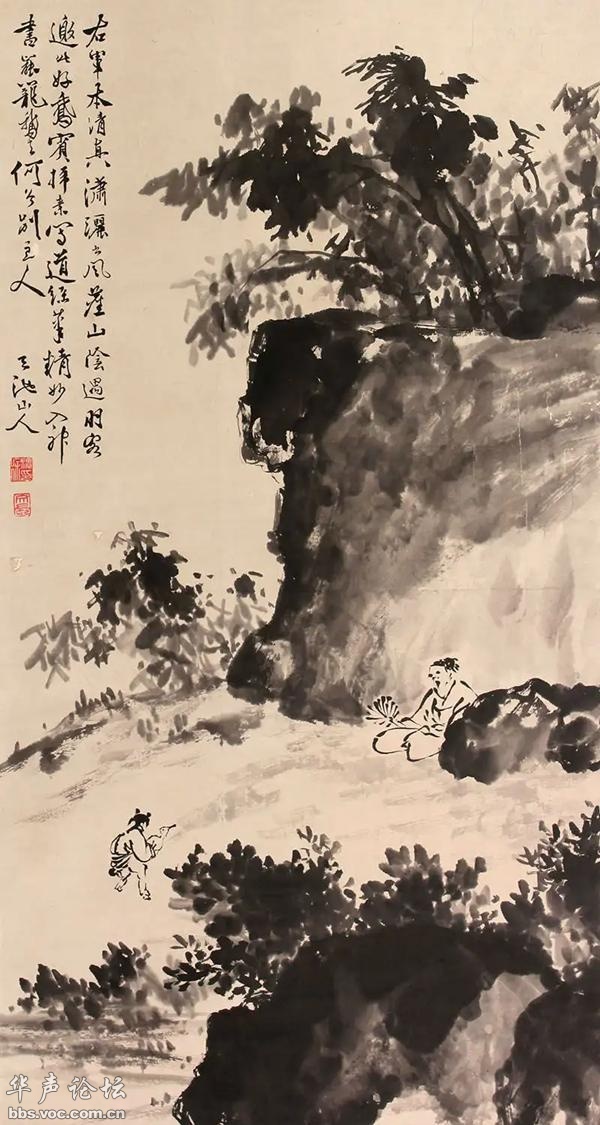 右軍本清真瀟灑出風塵山陰遇羽客
邀此好鵝賓掃素寫道經筆精妙入神
書罷籠鵝去何曾別主人
天池山人
华声论坛
bbs.voc.com.cn